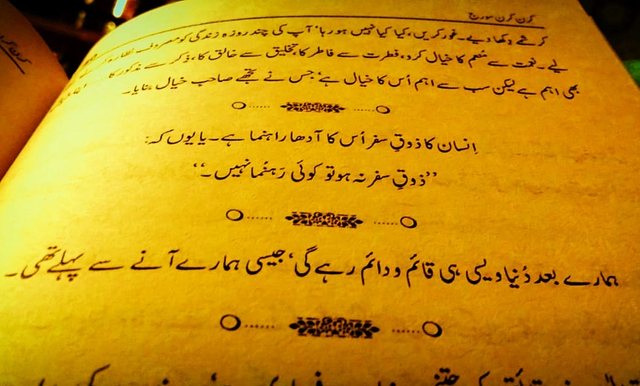 کرن کرن سورج
کرشمے دکھا دیے۔ غور کریں، کیا کیا نہیں ہو رہا، آپ کی چند روزہ زندگی کو مصروف
لیے۔ نعمت سے منعم کا خیال کرو، فطرت سے فاطر کا، تخلیق سے خالق کا، ذکر سے مذکور کا
بھی اہم ہے لیکن سب سے اہم اُس کا خیال ہے، جس نے تجھے صاحبِ خیال بنایا۔
اِنسان کا ذوقِ سفر اُس کا آدھا راہنما ہے۔ یا یوں کہ:
”ذوقِ سفر نہ ہو تو کوئی رَہنُما نہیں۔“
ہمارے بعد دُنیا ویسی ہی قائم و دائم رہے گی، جیسی ہمارے آنے سے پہلے تھی۔